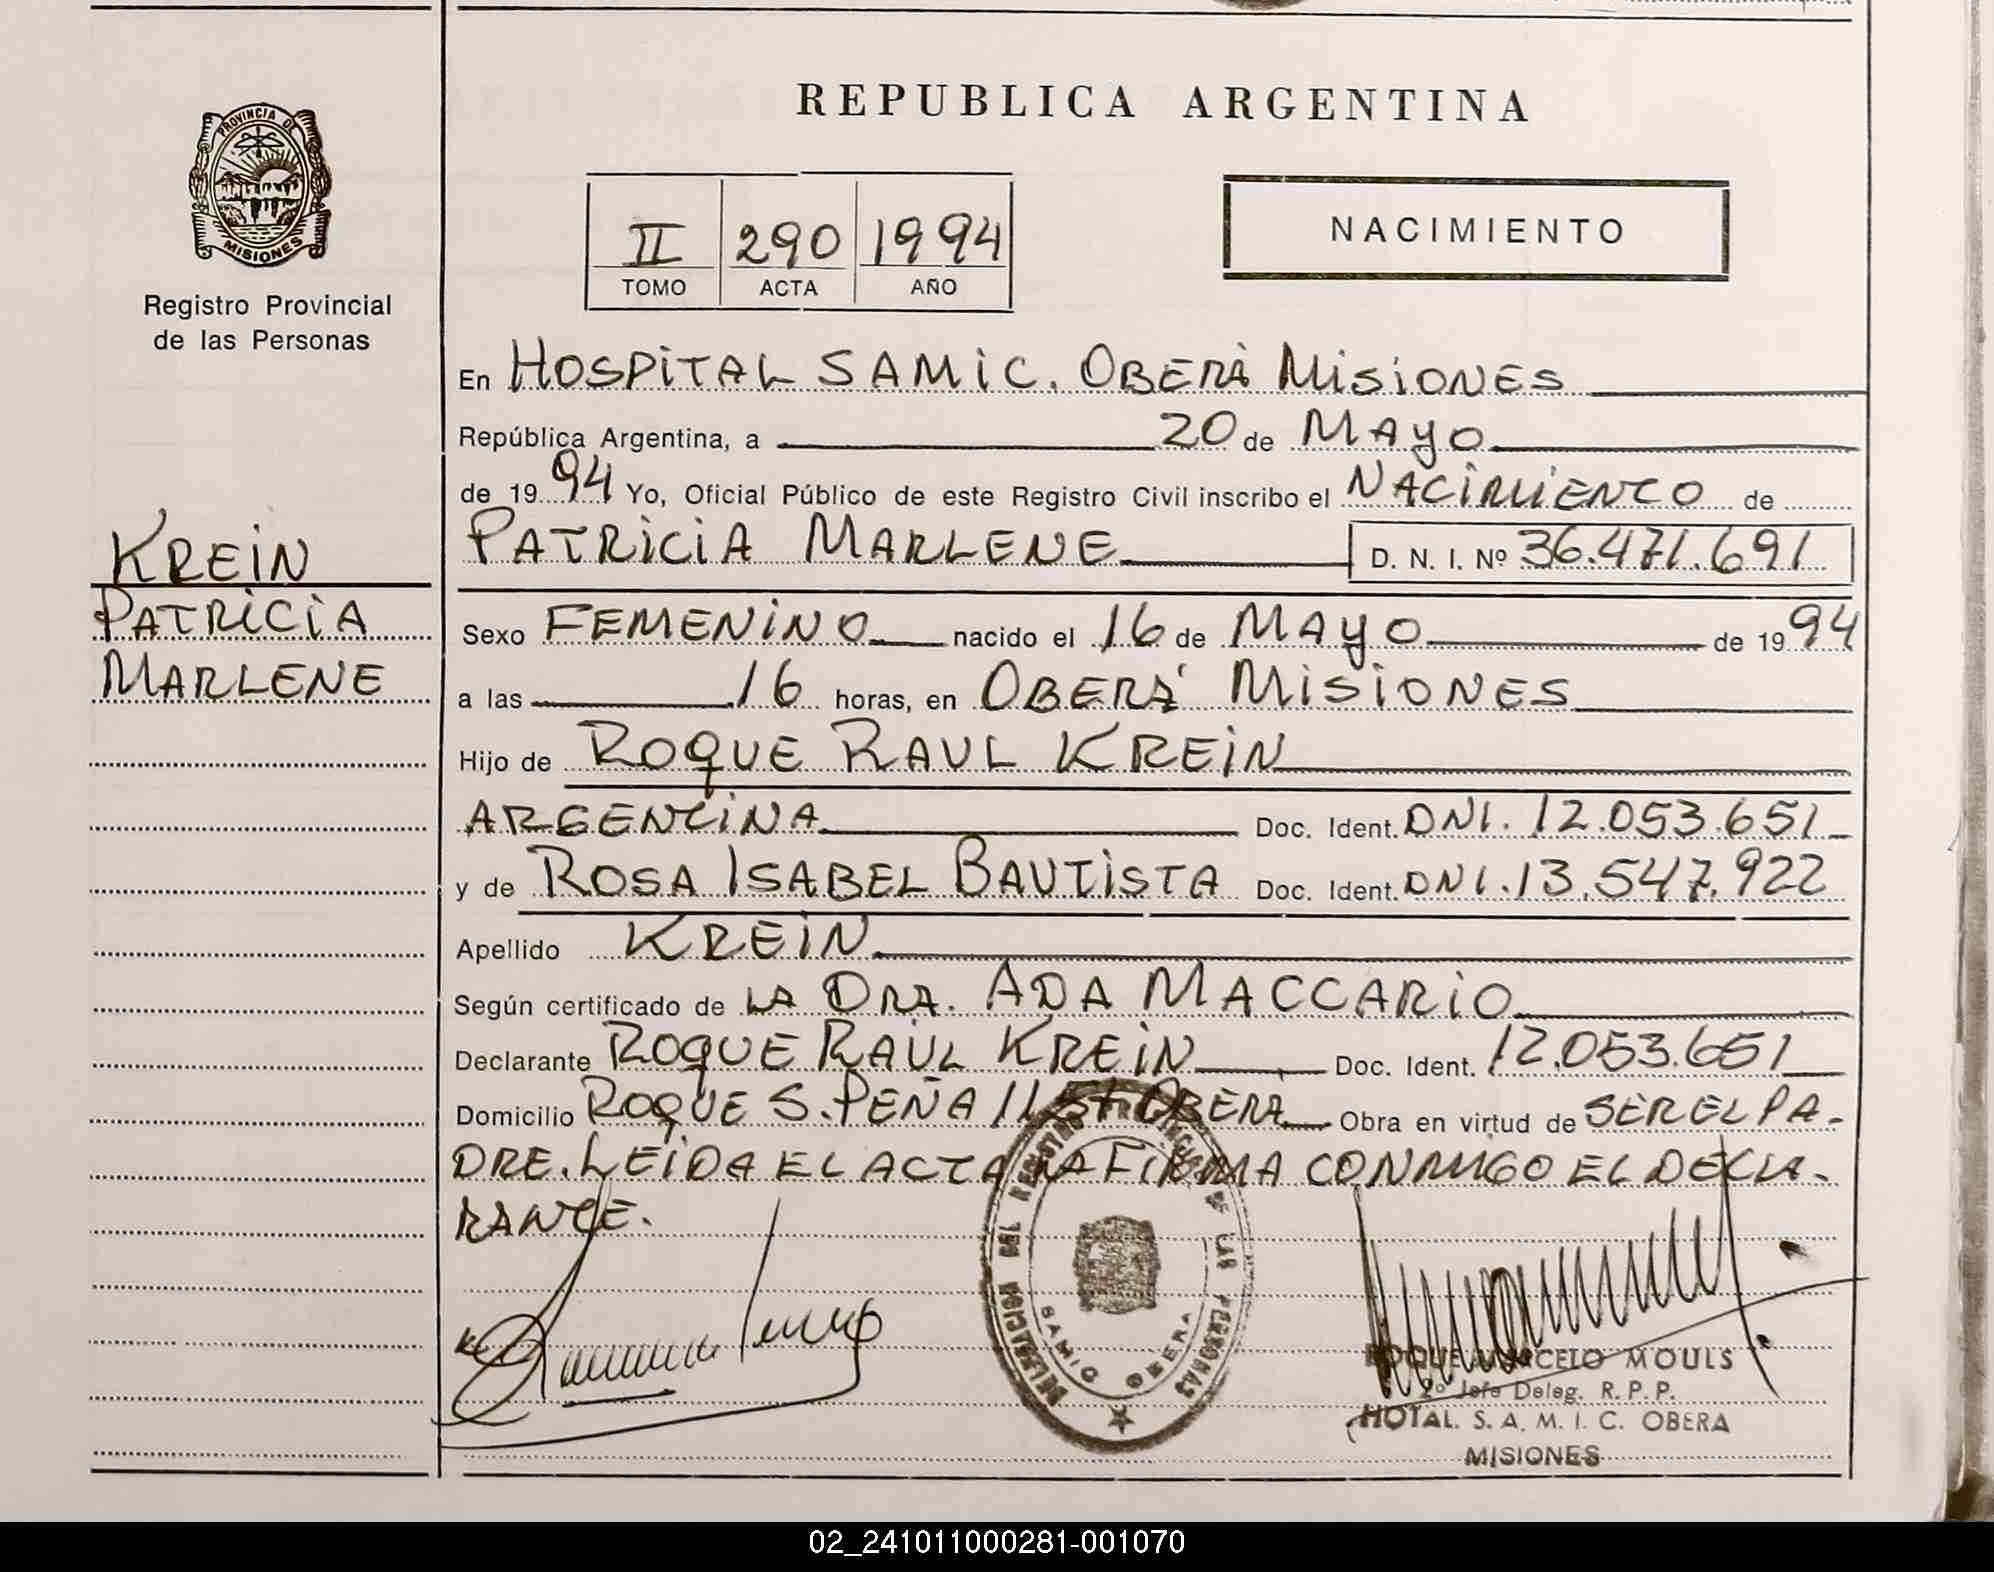 REPUBLICA ARGENTINA
PROVINCIA DE
MISIONES
Registro Provincial
de las Personas
II 290 1994
TOMO ACTA AÑO
NACIMIENTO
En HOSPITAL SAMIC. OBERÁ MISIONES
República Argentina, a 20 de MAYO
de 1994 Yo, Oficial Público de este Registro Civil inscribo el NACIMIENTO de
PATRICIA MARLENE D. N. I. Nº 36.471.691
KREIN
PATRICIA
MARLENE
Sexo FEMENINO nacido el 16 de MAYO de 1994
a las 16 horas, en OBERÁ MISIONES
Hijo de ROQUE RAUL KREIN
ARGENTINA Doc. Ident. DNI. 12.053.651
y de ROSA ISABEL BAUTISTA Doc. Ident. DNI. 13.547.922
Apellido KREIN
Según certificado de LA DRA. ADA MACCARIO
Declarante ROQUE RAUL KREIN Doc. Ident. 12.053.651
Domicilio ROQUE S. PEÑA OBERA Obra en virtud de SER EL PA-
DRE. LEIDA EL ACTA LA FIRMA CONMIGO EL DECLA-
RANTE.
DELEGACION DEL REGISTRO PROVINCIAL DE LAS PERSONAS
SAMIC OBERA
ROQUE MARCELO MOULS
2º Jefe Deleg. R. P. P.
HOTAL. S. A. M. I. C. OBERA
MISIONES
02_241011000281-001070